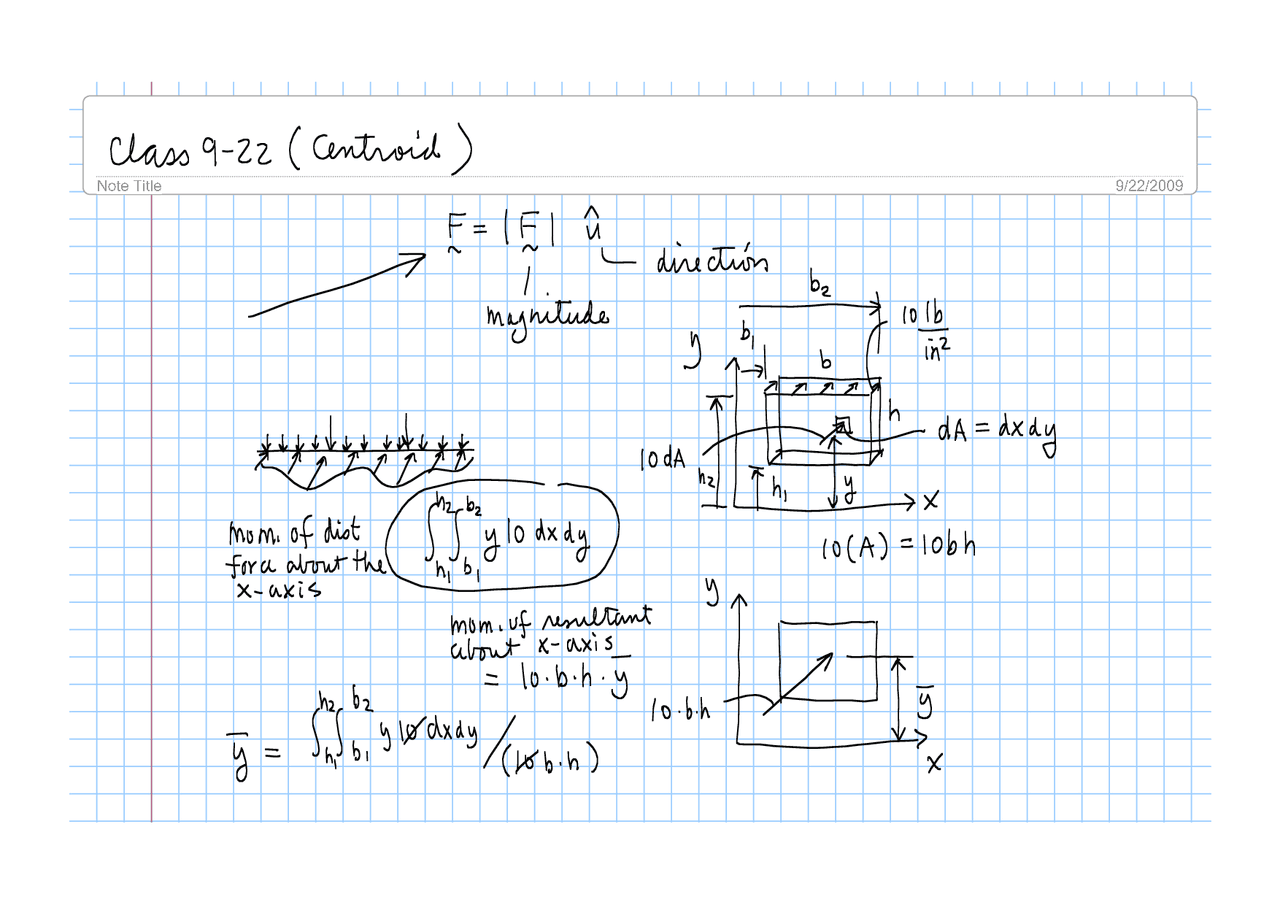 Class 9-22 (Centroid)
Note Title
9/22/2009
F̰ = |F̰| û
direction
magnitude
b₂
10 lb/in²
b₁
y
b
h
dA = dxdy
10dA
h₂
h₁
y
x
10(A) = 10bh
mom. of dist
force about the
x-axis
∫_{h₁}^{h₂} ∫_{b₁}^{b₂} y 10 dx dy
mom. of resultant
about x-axis
= 10·b·h·ȳ
y
10·b·h
ȳ
x
ȳ = ∫_{h₁}^{h₂} ∫_{b₁}^{b₂} y 10 dxdy / (10 b·h)